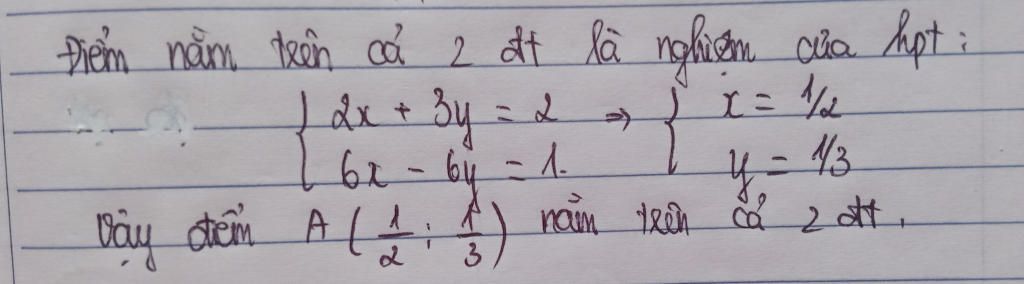 Điểm nằm trên cả 2 đt là nghiệm của hpt:
{ 2x + 3y = 2 => { x = 1/2
6x - 6y = 1. y = 1/3
Vậy điểm A (1/2; 1/3) nằm trên cả 2 đt.